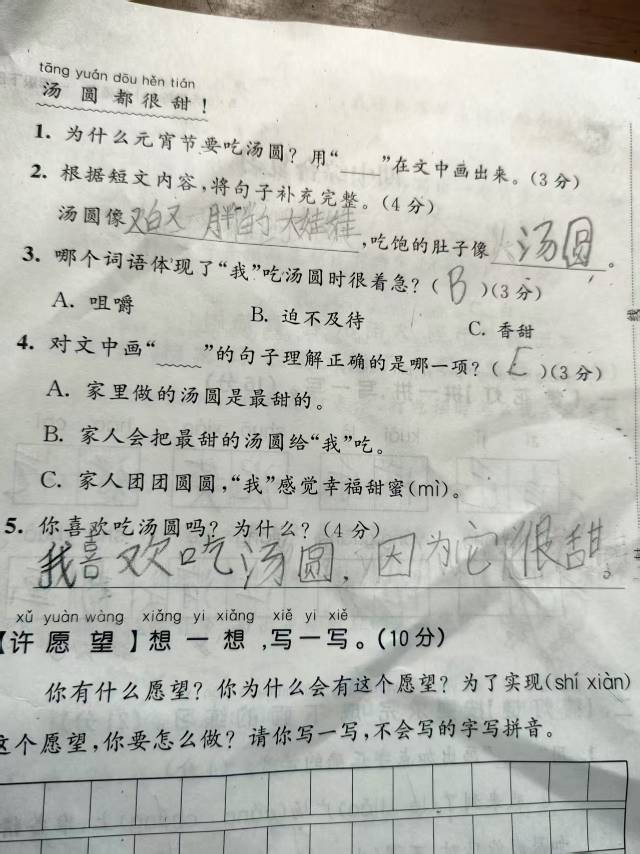 tāng yuán dōu hěn tián
汤圆都很甜！
1. 为什么元宵节要吃汤圆？用“____”在文中画出来。(3分)
2. 根据短文内容，将句子补充完整。(4分)
汤圆像又白又胖的大娃娃，吃饱的肚子像汤圆。
3. 哪个词语体现了“我”吃汤圆时很着急？(B)(3分)
A. 咀嚼 B. 迫不及待 C. 香甜
4. 对文中画“﹏﹏”的句子理解正确的是哪一项？(C)(3分)
A. 家里做的汤圆是最甜的。
B. 家人会把最甜的汤圆给“我”吃。
C. 家人团团圆圆，“我”感觉幸福甜蜜(mì)。
5. 你喜欢吃汤圆吗？为什么？(4分)
我喜欢吃汤圆，因为它很甜。
xǔ yuàn wàng xiǎng yi xiǎng xiě yi xiě
【许愿望】想一想，写一写。(10分)
你有什么愿望？你为什么会有这个愿望？为了实现(shí xiàn)
这个愿望，你要怎么做？请你写一写，不会写的字写拼音。